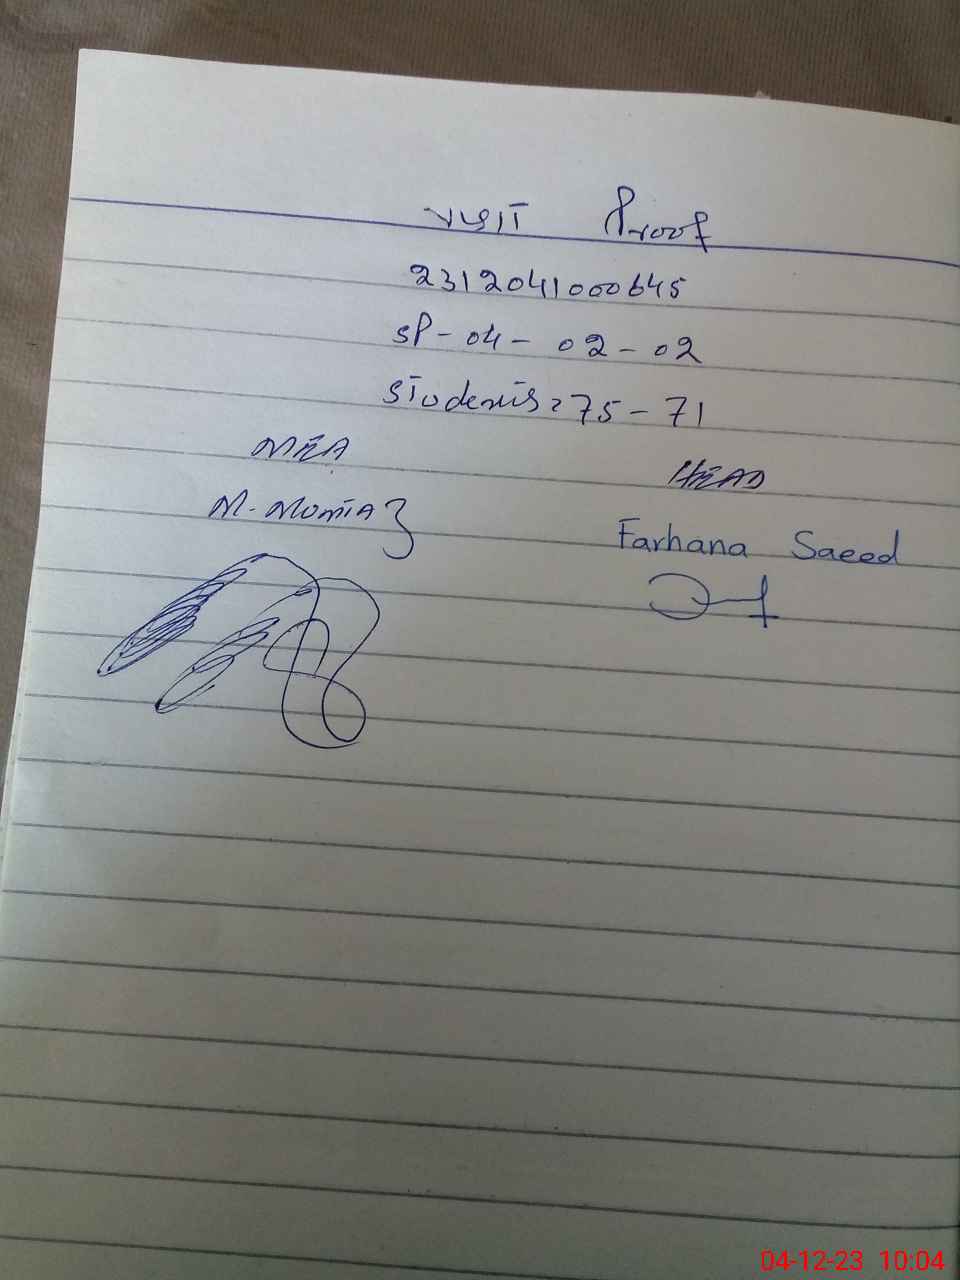 VISIT Proof
2312041000645
SP-04-02-02
Students = 75-71
MEA
HEAD
M. Momtaz
Farhana Saeed
04-12-23 10:04